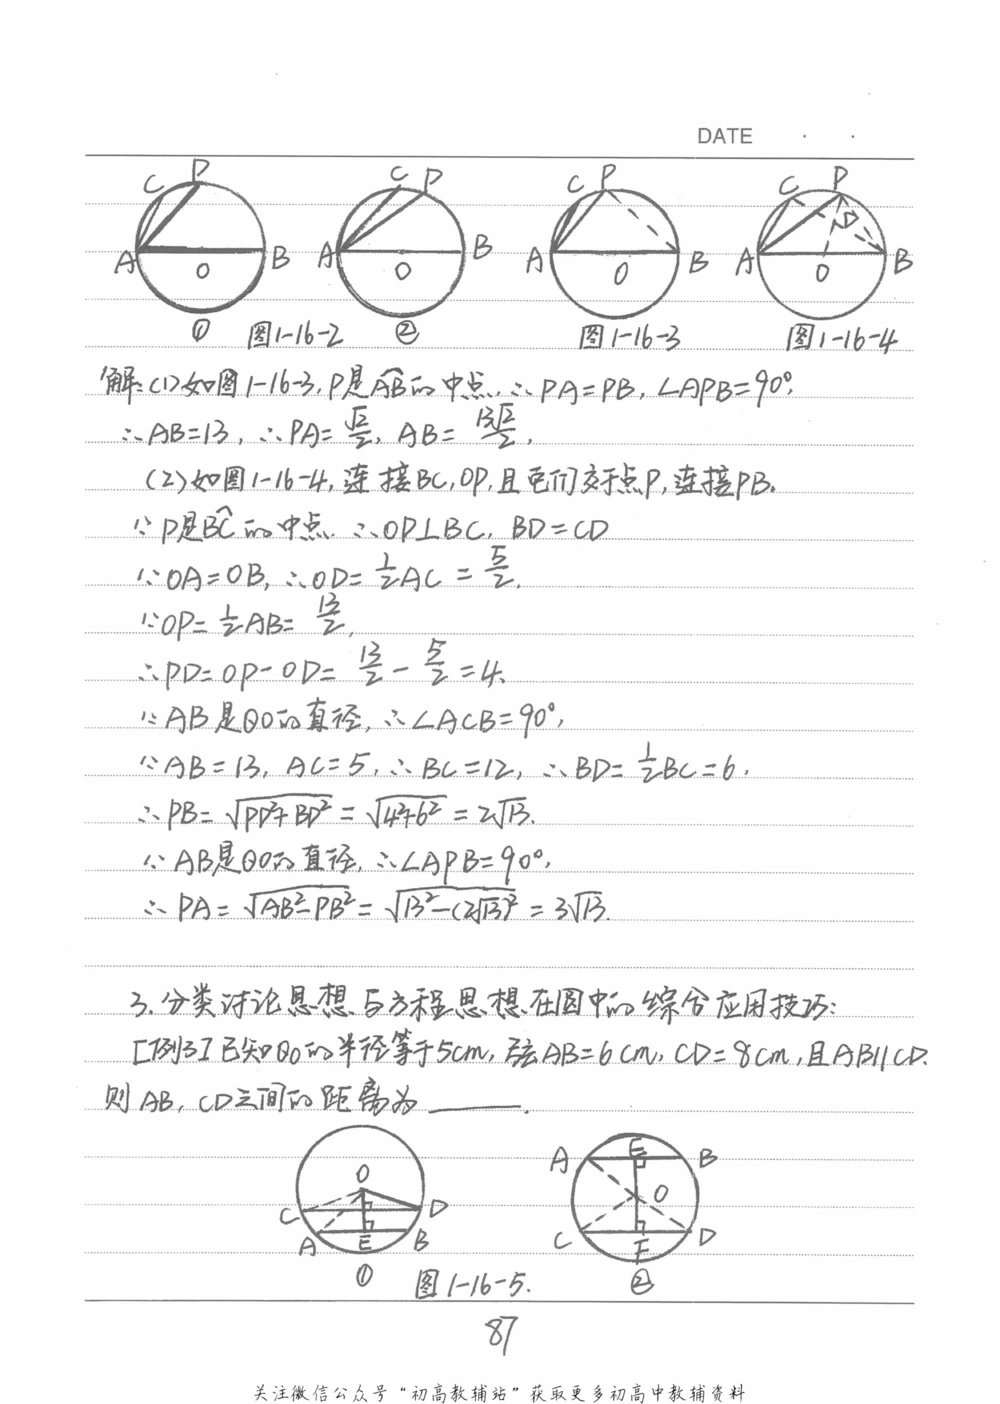 DATE · ·
C P A O B C P A O B C P A O B C P D A O B
① 图1-16-2 ② 图1-16-3 图1-16-4
解:(1)如图1-16-3,P是AB⌢的中点,∴PA=PB,∠APB=90°,
∴AB=13,∴PA=√2/2,AB=13√2/2,
(2)如图1-16-4,连接BC,OP,且它们交于点P,连接PB.
∵P是BC⌢的中点,∴OP⊥BC,BD=CD
∵OA=OB,∴OD=1/2AC=5/2,
∵OP=1/2AB=13/2,
∴PD=OP-OD=13/2-5/2=4,
∵AB是⊙O的直径,∴∠ACB=90°,
∵AB=13,AC=5,∴BC=12,∴BD=1/2BC=6,
∴PB=√(PD²+BD²)=√(4²+6²)=2√13.
∵AB是⊙O的直径,∴∠APB=90°,
∴PA=√(AB²-PB²)=√(13²-(2√13)²)=3√13.
3.分类讨论思想与方程思想在圆中的综合应用技巧:
[例3]已知⊙O的半径等于5cm,弦AB=6cm,CD=8cm,且AB∥CD.
则AB,CD之间的距离为______.
O C D A E B A E B O C F D
① 图1-16-5. ②
87
关注微信公众号“初高教辅站”获取更多初高中教辅资料